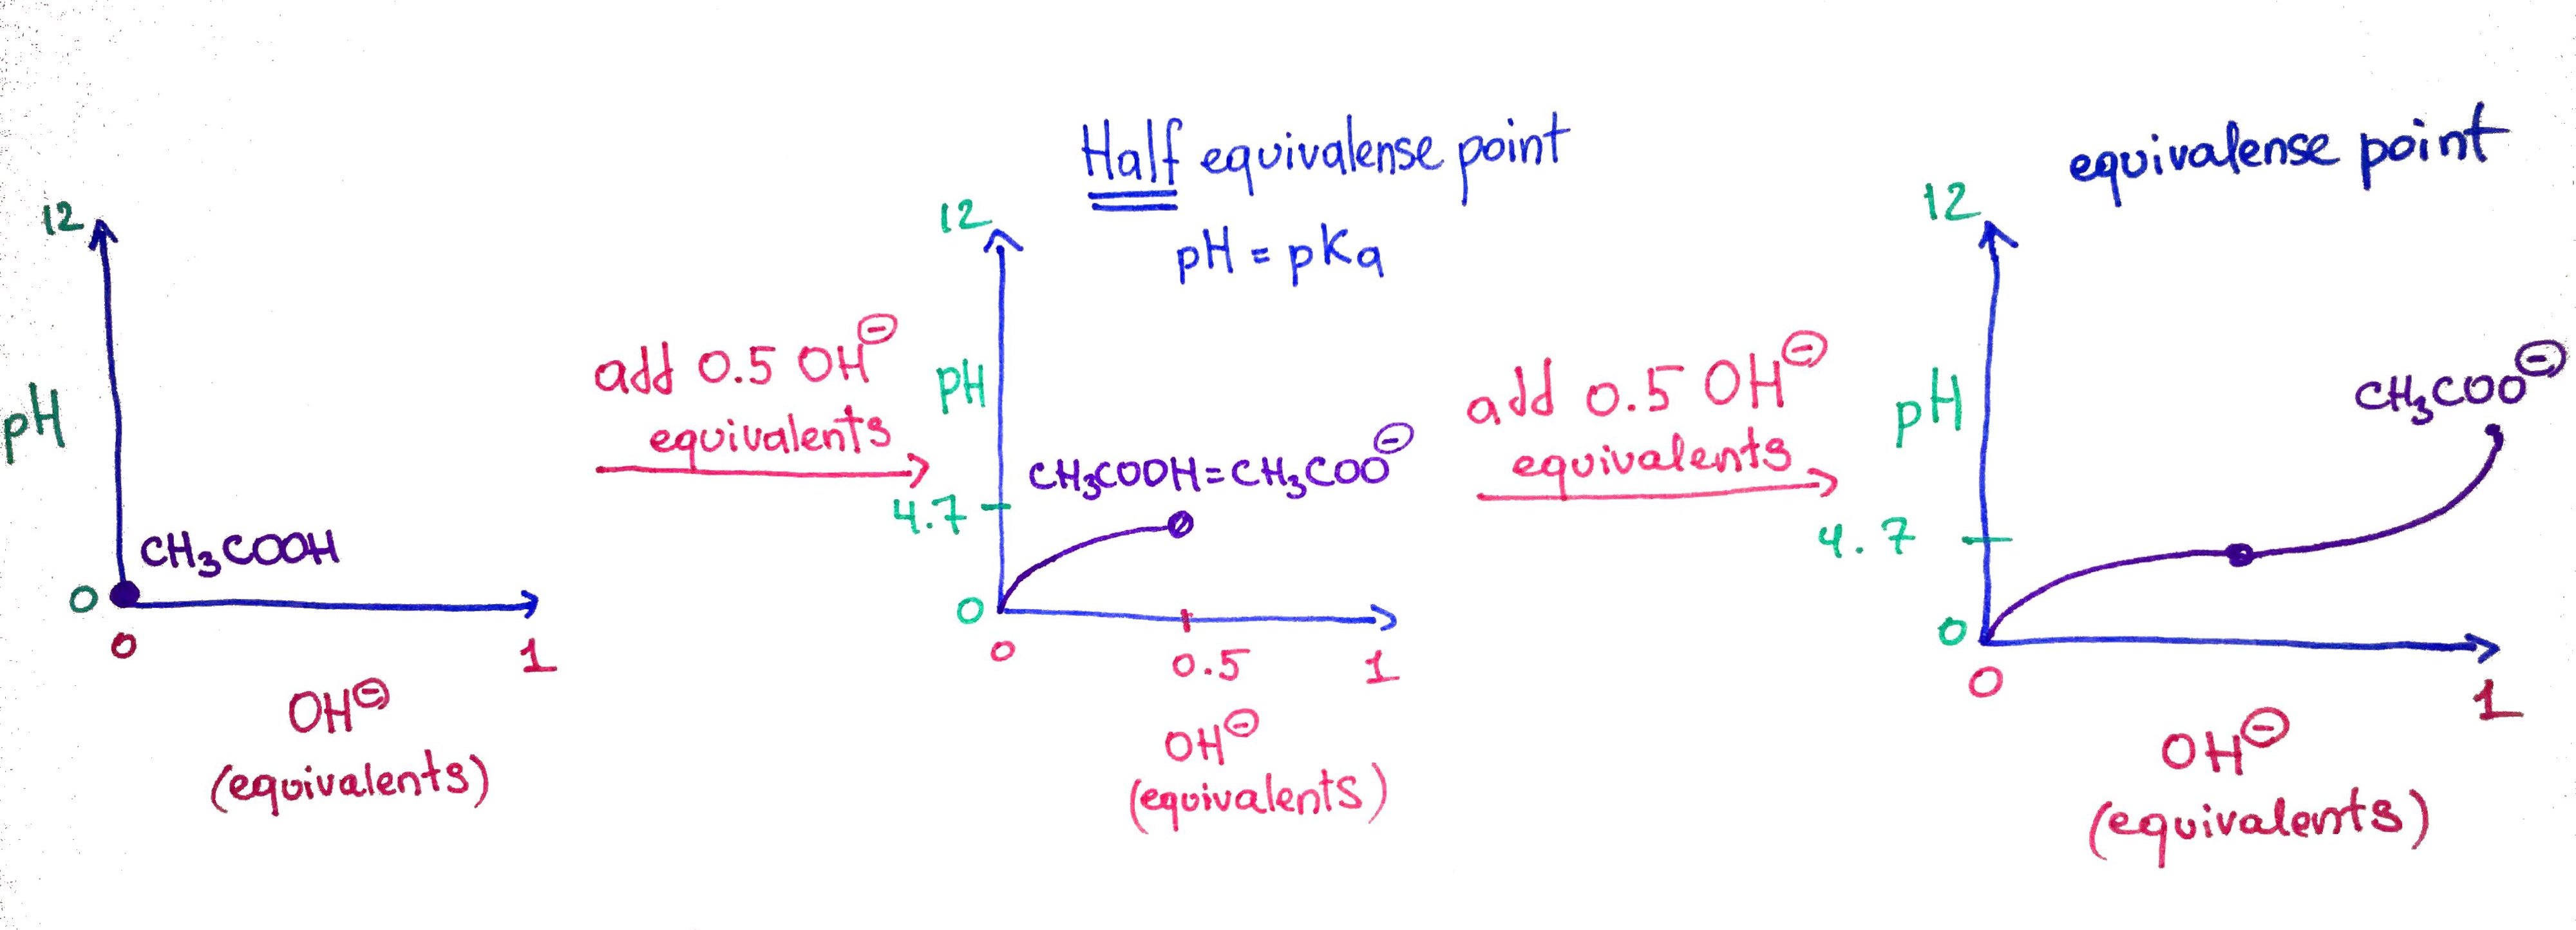 12
pH
CH₃COOH
0
0
1
OH⊖
(equivalents)
add 0.5 OH⊖
equivalents
Half equivalense point
pH = pKa
12
pH
CH₃COOH=CH₃COO⊖
4.7
0
0
0.5
1
OH⊖
(equivalents)
add 0.5 OH⊖
equivalents
equivalense point
12
pH
CH₃COO⊖
4.7
0
0
1
OH⊖
(equivalents)